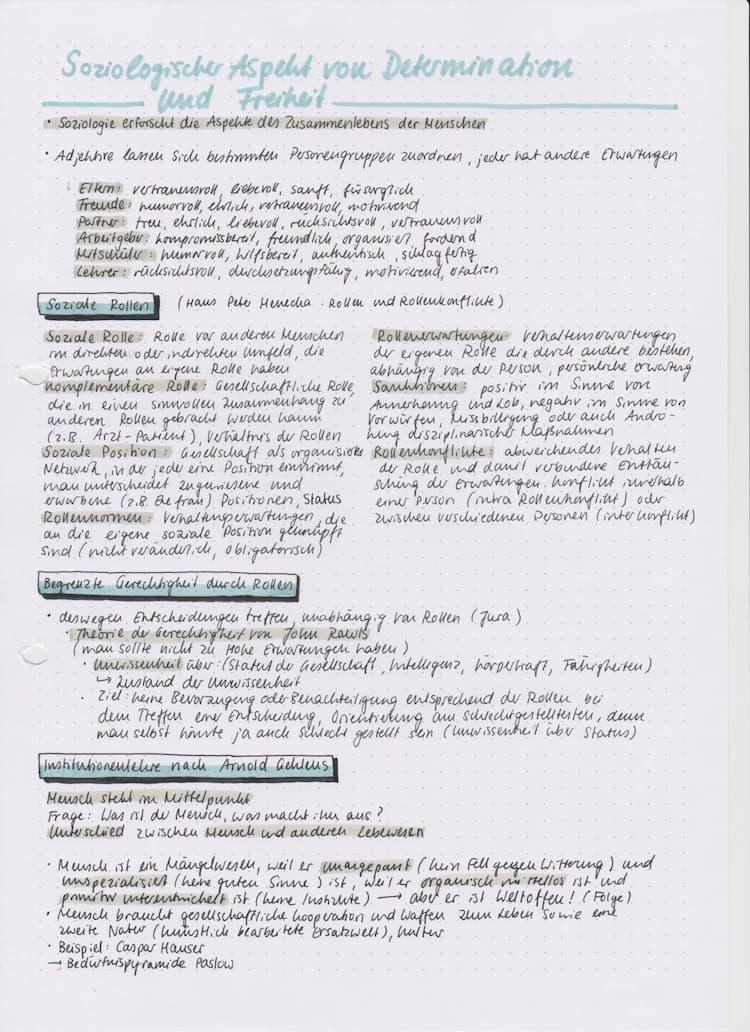 Soziologischer Aspekt von Determination
und Freiheit
• Soziologie erforscht die Aspekte des Zusammenlebens der Menschen
• Adjektive lassen sich bestimmten Personengruppen zuordnen, jeder hat andere Erwartungen
↳ Eltern: vertrauensvoll, liebevoll, sanft, fürsorglich
Freunde: humorvoll, ehrlich, vertrauensvoll, motivierend
Partner: treu, ehrlich, liebevoll, rücksichtsvoll, vertrauensvoll
Arbeitgeber: kompromissbereit, freundlich, organisiert, fordernd
Mitschüler: humorvoll, hilfsbereit, authentisch, schlagfertig
Lehrer: rücksichtsvoll, durchsetzungsfähig, motivierend, erfahren
Soziale Rollen (Hans Peter Henecka: Rollen und Rollenkonflikte)
Soziale Rolle: Rolle vor anderen Menschen
im direkten oder indirekten Umfeld, die
Erwartungen an eigene Rolle haben
komplementäre Rolle: Gesellschaftliche Rolle,
die in einen sinnvollen Zusammenhang zu
anderen Rollen gebracht werden kann
(z.B. Arzt-Patient), Verhältnis der Rollen
Soziale Position: Gesellschaft als organisiertes
Netzwerk, in der jede eine Position einnimmt,
man unterscheidet zugewiesene und
erworbene (z.B. Ehefrau) Positionen, Status
Rollennormen: Verhaltenserwartungen, die
an die eigene soziale Position geknüpft
sind (nicht veränderlich, obligatorisch)
Rollenerwartungen: Verhaltenserwartungen
der eigenen Rolle die durch andere bestehen,
abhängig von der Person, persönliche Erwartung
Sanktionen: positiv im Sinne von
Anerkennung und Lob, negativ im Sinne von
Vorwürfen, Missbilligung oder auch Andro-
hung disziplinarischer Maßnahmen
Rollenkonflikte: abweichendes Verhalten
der Rolle und damit verbundene Enttäu-
schung der Erwartungen. Konflikt innerhalb
einer Person (intra Rollenkonflikt) oder
zwischen verschiedenen Personen (interkonflikt)
Begrenzte Gerechtigkeit durch Rollen
• deswegen Entscheidungen treffen, unabhängig von Rollen (Jura)
• Theorie der Gerechtigkeit von John Rawls
(man sollte nicht zu hohe Erwartungen haben)
• Unwissenheit über: (Status der Gesellschaft, Intelligenz, Körperkraft, Fähigkeiten)
↳ Zustand der Unwissenheit
• Ziel: keine Bevorzugung oder Benachteiligung entsprechend der Rollen bei
dem Treffen einer Entscheidung, Orientierung am schlechtgestelltesten, denn
man selbst könnte ja auch schlecht gestellt sein (Unwissenheit über Status)
Institutionenlehre nach Arnold Gehlens
Mensch steht im Mittelpunkt
Frage: Was ist der Mensch, was macht ihn aus?
Unterschied zwischen Mensch und anderen Lebewesen
• Mensch ist ein Mängelwesen, weil er unangepasst (kein Fell gegen Witterung) und
unspezialisiert (keine guten Sinne) ist, weil er organisch mittellos ist und
primitiv unterentwickelt ist (keine Instinkte) → aber er ist Weltoffen! (Folge)
• Mensch braucht gesellschaftliche Kooperation und Waffen zum Leben sowie eine
zweite Natur (künstlich bearbeitete Ersatzwelt), Kultur
• Beispiel: Caspar Hauser
→ Bedürfnispyramide Paslow